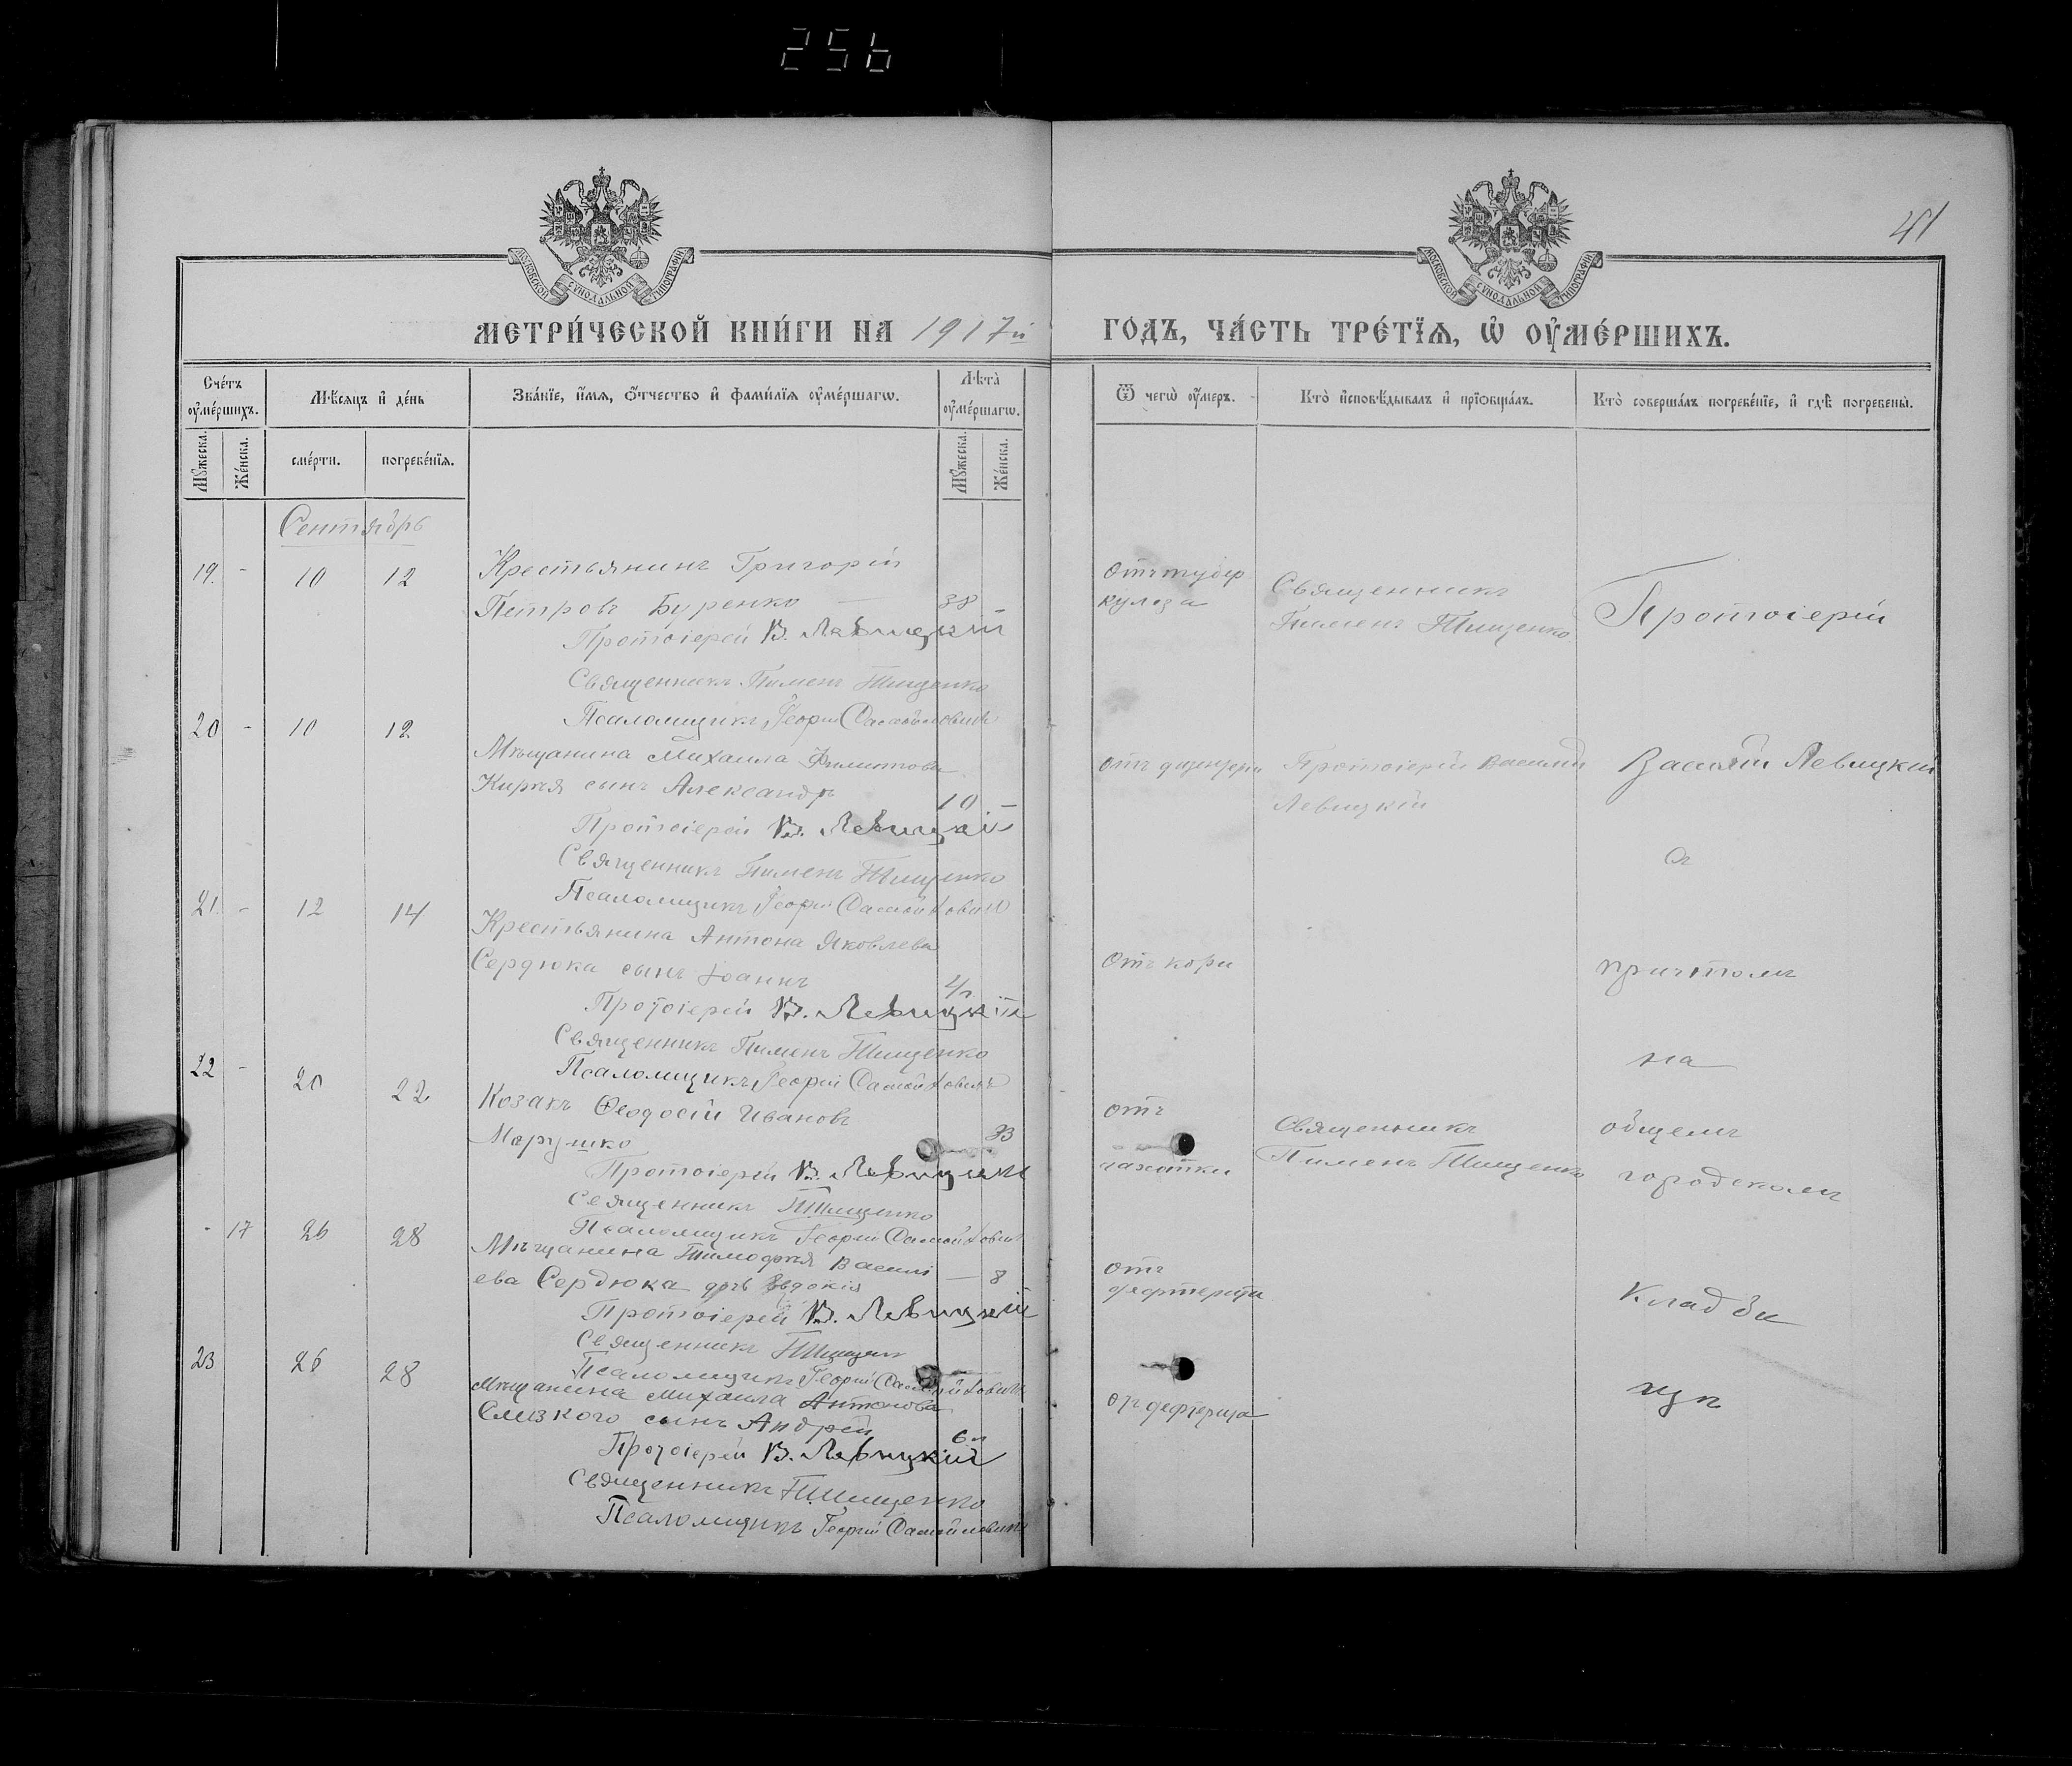 256
41
МОСКОВСКОЙ СѴНОДАЛЬНОЙ ТИПОГРАФІИ
МОСКОВСКОЙ СѴНОДАЛЬНОЙ ТИПОГРАФІИ
МЕТРИ́ЧЕСКОЙ КНИ́ГИ НА 1917й ГОДЪ, ЧА́СТЬ ТРЕ́ТЇѦ, Ѡ҆ ОУ҆МЕ́РШИХЪ.
Сче́тъ оу҆ме́ршихъ.
Мѣ́сяцъ и҆ де́нь
Зва́нїе, и҆́мѧ, ѻ҆́тчество и҆ фами́лїѧ оу҆ме́ршагѡ.
Лѣта̀ оу҆ме́ршагѡ.
Ѿ чегѡ̀ оу҆́меръ.
Кто̀ и҆сповѣ́дывалъ и҆ прїѡбща́лъ.
Кто̀ соверша́лъ погребе́нїе, и҆ гдѣ̀ погребены̀.
Мꙋ́жеска.
Же́нска.
сме́рти.
погребе́нїѧ.
Мꙋ́жеска.
Же́нска.
Сентябрь
19. - 10 12 Крестьянинъ Григорій
Петровъ Буренко — 38 -
Протоіерей В. Левицкій
Священникъ Пименъ Тищенко
Псаломщикъ Георгій Самойловичъ
Отъ тубер
кулеза
Священникъ
Пименъ Тищенко
Протоіерей
20 - 10 12
Мѣщанина Михаила Филиппова
Кирея сынъ Александръ 10 -
Протоіерей В. Левицкій
Священникъ Пименъ Тищенко
Псаломщикъ Георгій Самойловичъ
отъ дизентеріи
Протоіерей Василій
Левицкій
Василій Левицкій
съ
21. - 12 14
Крестьянина Антона Яковлева
Сердюка сынъ Іоаннъ
Протоіерей В. Левицкій
Священникъ Пименъ Тищенко
Псаломщикъ Георгій Самойловичъ
Отъ кори
причтомъ
на
22 - 20 22
Козакъ Ѳеодосій Ивановъ
Марушко 33
Протоіерей В. Левицкій
Священникъ П Тищенко
Псаломщикъ Георгій Самойловичъ
отъ
чахотки
Священникъ
Пименъ Тищенко
общемъ
городскомъ
- 17 26 28
Мѣщанина Тимофея Василі
ева Сердюка дочь Евдокія — 8
Протоіерей В. Левицкій
Священникъ П Тищенко
Псаломщикъ Георгій Самойловичъ
отъ
дефтерита
кладби
23 26 28
Мѣщанина Михаила Антонова
Слизкого сынъ Андрей 6 л
Протоіерей В. Левицкій
Священникъ П. Тищенко
Псаломщикъ Георгій Самойловичъ
отъ дефтерита
щѣ